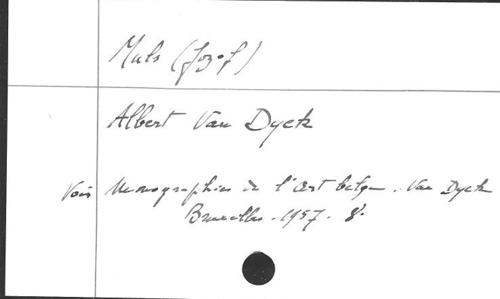 Muls (Jozef)
Albert Van Dyck
Voir Monographies de l'art belge. Van Dyck
Bruxelles. 1957. 8°.